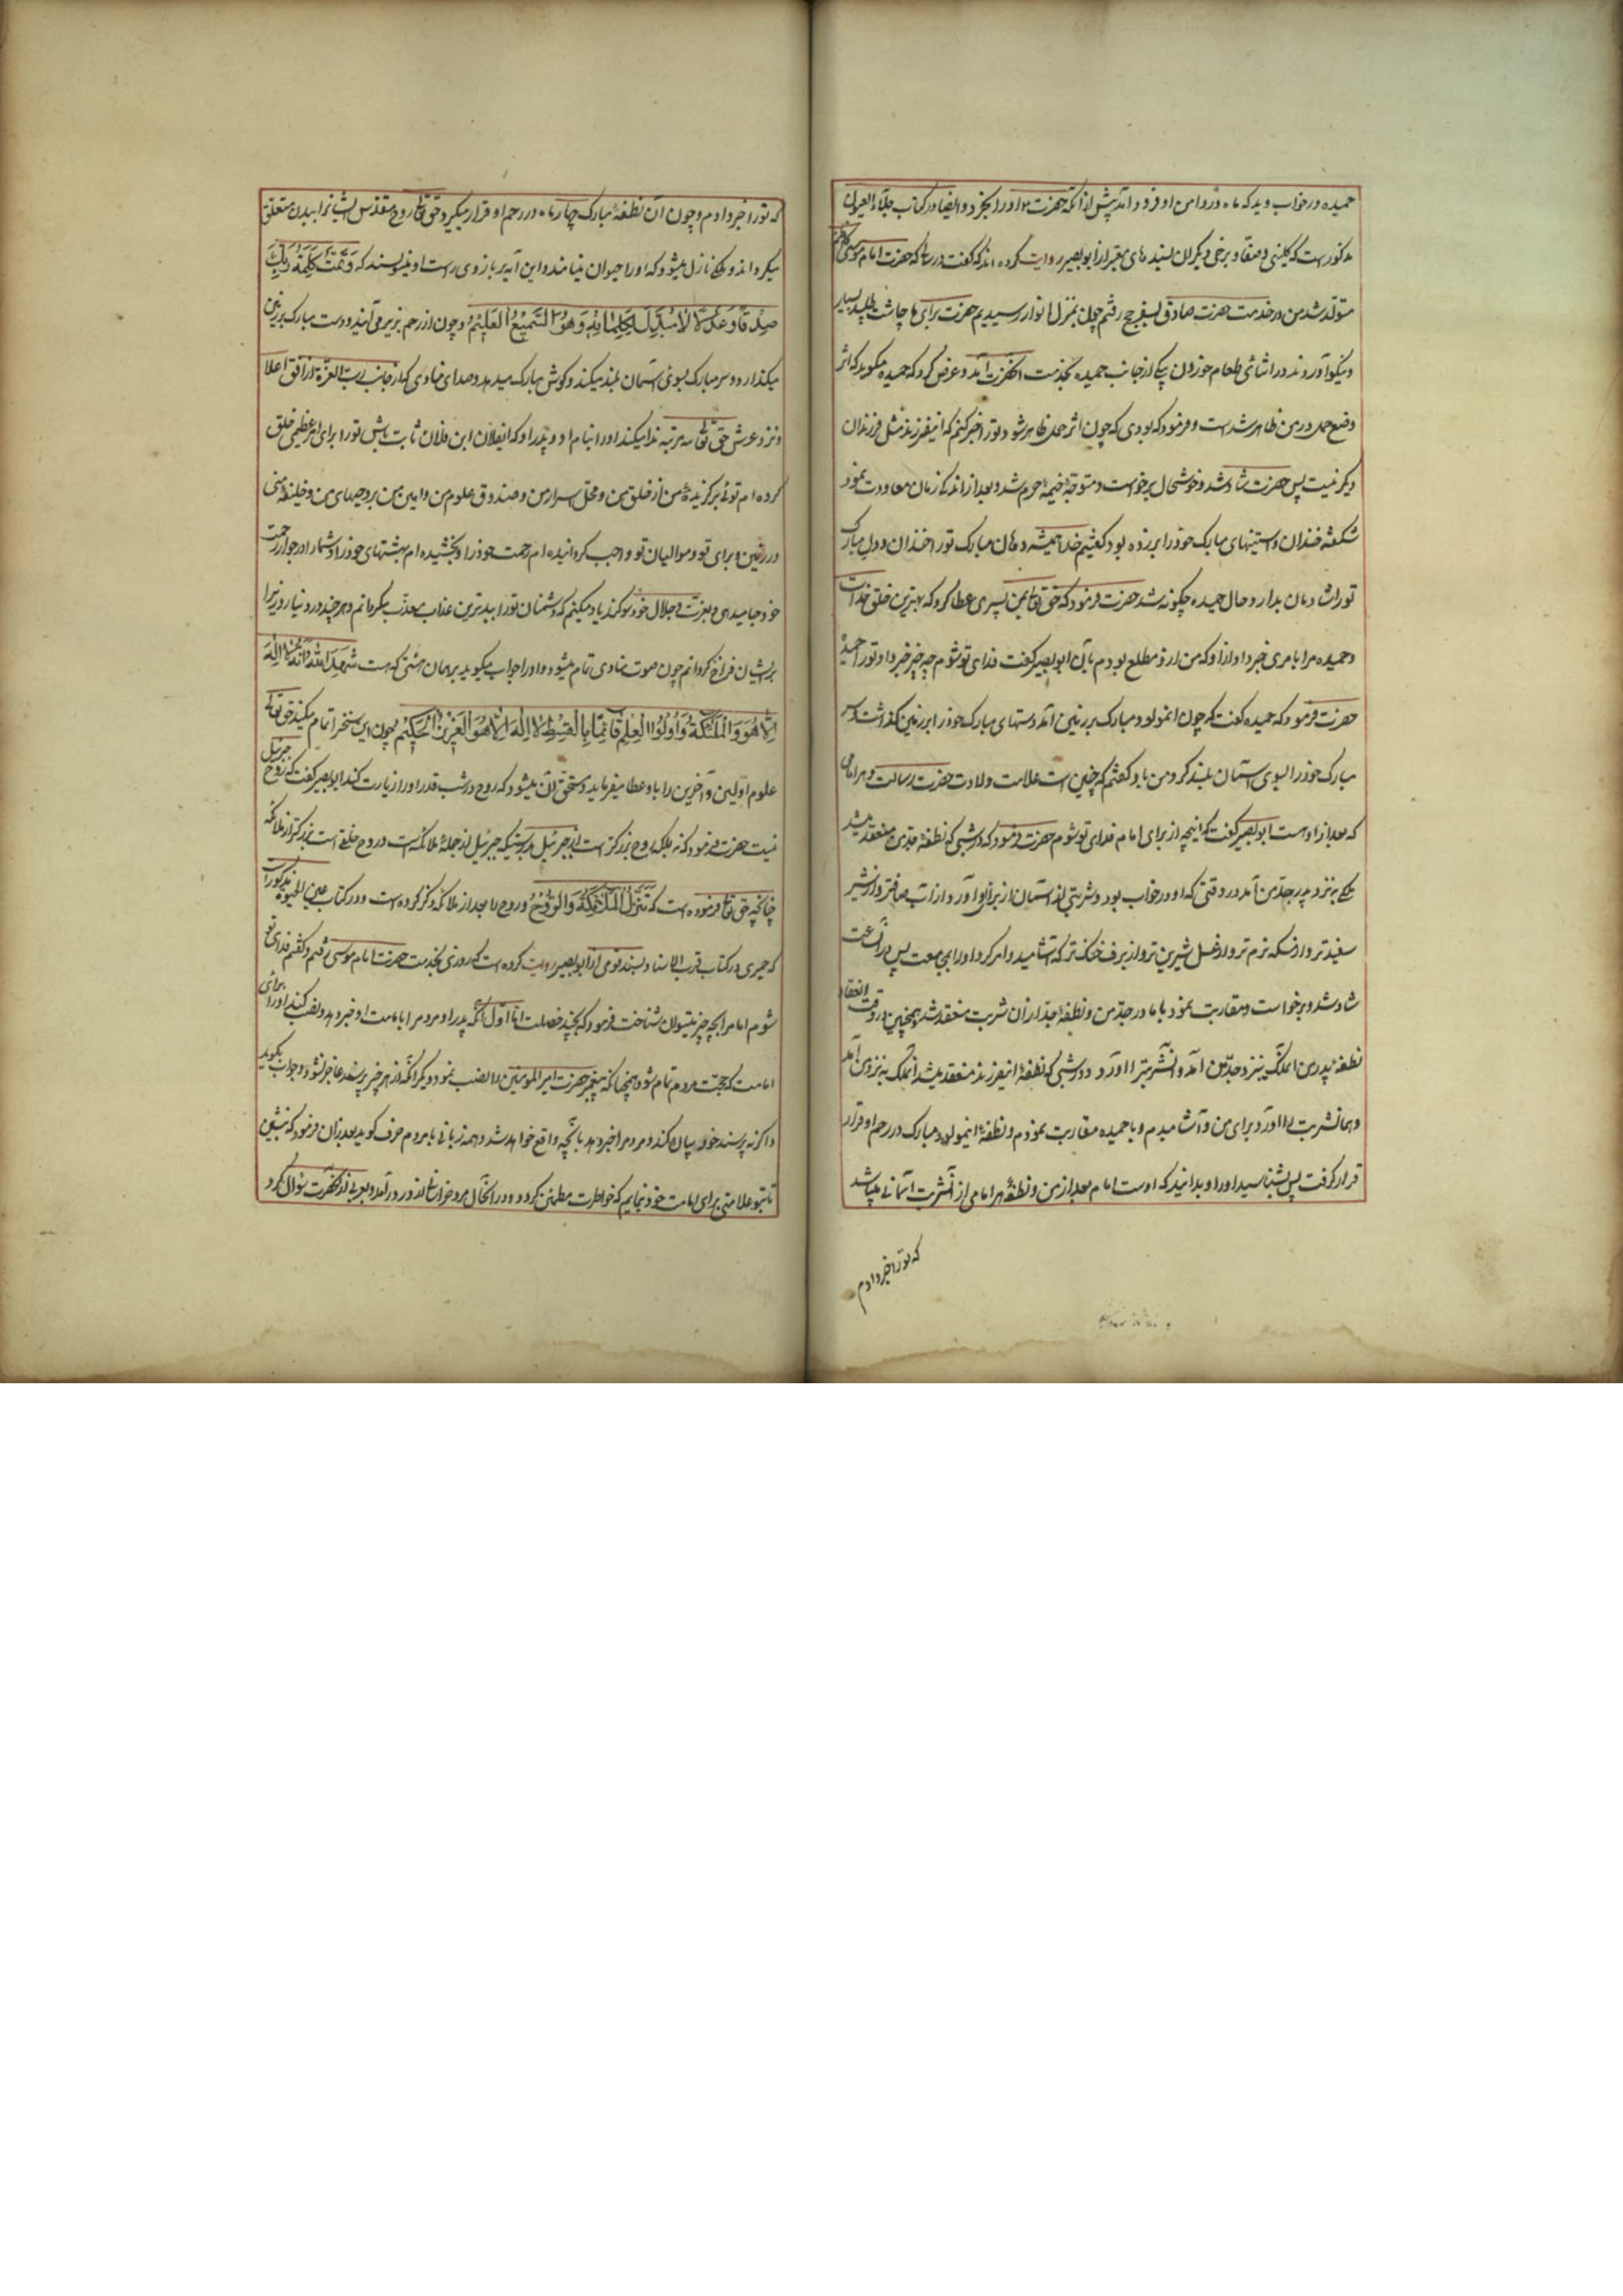 حمیده در خواب دید که ماه در دامن او فرود آمد پیش از آنکه حضرت او را بخرد و ایضا در کتاب جلاء العیون
مذکور است که کلینی و صفار و برخی دیگران بسندهای معتبر از ابو بصیر روایت کرده اند که گفت در سالی که حضرت امام موسی کاظم
متولد شد من در خدمت حضرت صادق بسفر حج رفتم چون بمنزل ابوا رسیدیم حضرت برای ما چاشت طلبید بسیار
و نیکو آوردند در اثنای طعام خوردن پیکی از جانب حمیده بخدمت آنحضرت آمد و عرض کرد که حمیده میگوید که اثر
وضع حمل در من ظاهر شده است و فرموده بودی که چون اثر حمل ظاهر شود تو را خبر کنم که این فرزند مثل فرزندان
دیگر نیست پس حضرت شاد شد و خوشحال برخواست و متوجه خیمه حرم شد و بعد از اندک زمان معاودت نمود
شکفته خندان و آستینهای مبارک خود را بر زده بود گفتیم خدا همیشه دهان مبارک تو را خندان و دل مبارک
تو را شادمان بدارد حال حمیده چگونه شد حضرت فرمود که حق تعالی بمن پسری عطا کرد که بهترین خلق خداست
و حمیده مرا بامری خبر داد از او که من از او مطلع بودم بآن ابو بصیر گفت فدای تو شوم چه چیز خبر داد تو را حمیده
حضرت فرمود که حمیده گفت که چون آن مولود مبارک بر زمین آمد دستهای مبارک خود را بر زمین گذاشت و سر
مبارک خود را بسوی آسمان بلند کرد من باو گفتم که چنین است علامت ولادت حضرت رسالت و هر امامی
که بعد از او است ابو بصیر گفت که اینچه از برای امام فدای تو شوم حضرت فرمود که در شبی که نطفه جدم منعقد میشد
ملکی بنزد پدر جدم آمد در وقتی که او در خواب بود و شربتی از آسمان از برای او آورد از آب صافتر و از شیر
سفیدتر و از مسکه نرم تر و از عسل شیرین تر و از برف خنک تر که آشامید و امر کرد او را بمجامعت پس در آنساعت
شاد شد و برخواست و مقاربت نمود با مادر جد من و نطفه جدم از آن شربت منعقد شد و همچنین در وقت انعقاد
نطفه پدر من آن ملک بنزد جد من آمد و آن شربت را آورد و در شبی که نطفه این فرزند منعقد میشد آن ملک به نزد من آمد
و همان شربت را آورد برای من و آشامیدم و با حمیده مقاربت نمودم و نطفه این مولود مبارک در رحم او قرار
قرار گرفت پس بشناسید او را و بدانید که اوست امام بعد از من و نطفه هر امامی از آن شربت آسمانی میباشد
که تو را خبر دادم
که تو را خبر دادم و چون آن نطفه مبارک چهار ماه در رحم او قرار میگیرد حق تعالی روح مقدس ایشانرا ببدن متعلق
میگرداند و ملکی نازل میشود که او را حیوان مینامند و این آیه بر بازوی راست او مینویسند که وَتَمَّتْ كَلِمَةُ رَبِّكَ
صِدْقًا وَعَدْلًا لَا مُبَدِّلَ لِكَلِمَاتِهِ وَهُوَ السَّمِيعُ الْعَلِيمُ و چون از رحم بزیر می آیند و دست مبارک بر زمین
میگذارد و سر مبارک بسوی آسمان بلند میکند و گوش مبارک میدهد و صدای منادی که از جانب رب العزة از افق اعلا
و نزد عرش حق تعالی سه مرتبه ندا میکند او را بنام او و پدر او که ای فلان ابن فلان ثابت باش تو را برای امر عظیمی خلق
کرده ام توئی برگزیده من از خلق من و محل اسرار من و صندوق علوم من و امین من بر وحیهای من و خلیفه منی
در زمین و برای تو و موالیان تو واجب گردانیده ام رحمت خود را و بخشیده ام بهشتهای خود را و شما را در جوار رحمت
خود جا میدهی و بعزت و جلال خود سوگند یاد میکنم که دشمنان تو را ببدترین عذاب معذب میگردانم و هر چند در دنیا روزی را
بر ایشان فراخ گردانم چون صوت منادی تمام میشود و او را جواب میگوید بر همان هیئتی که هست شَهِدَ اللّٰهُ أَنَّهُ لَا إِلٰهَ
إِلَّا هُوَ وَالْمَلَائِكَةُ وَأُولُوا الْعِلْمِ قَائِمًا بِالْقِسْطِ لَا إِلٰهَ إِلَّا هُوَ الْعَزِيزُ الْحَكِيمُ چون این سخن را تمام میکند حق تعالی
علوم اولین و آخرین را باو عطا میفرماید و مستحق آن میشود که روح در شب قدر او را زیارت کند ابو بصیر گفت که روح جبرئیل
نیست حضرت فرمود که نه بلکه روح بزرگتر است از جبرئیل بدرستیکه جبرئیل از جمله ملائکه است و روح خلقی است بزرگتر از ملائکه
چنانچه حق تعالی فرموده است که تَنَزَّلُ الْمَلَائِكَةُ وَالرُّوحُ و روح را بعد از ملائکه ذکر کرده است و در کتاب عین الحیوة مذکور است
که حمیری در کتاب قرب الاسناد بسند قوی از ابو بصیر روایت کرده است که روزی بخدمت حضرت امام موسی رفتم و گفتم فدای تو
شوم امام را بچه چیز میتوان شناخت فرمود که بچند خصلت اما اول آنکه پدر او مردم را بامامت او خبر دهد و نصب کند او را برای
امامت که حجت مردم تمام شود چنانکه پیغمبر حضرت امیر المومنین را نصب نمود و دیگر آنکه از هر چیز پرسند عاجز نشود و جواب بگوید
و اگر نه پرسند خود بیان کند و مردم را خبر دهد بآنچه واقع خواهد شد و بهمه زبانی با مردم حرف گوید بعد از آن فرمود که بنشین
تا بتو علامتی برای امامت خود بنمایم که خاطرت مطمئن گردد و در آنحال مرد خراسانی از در درآمد و بعربی از آنحضرت سؤال کرد